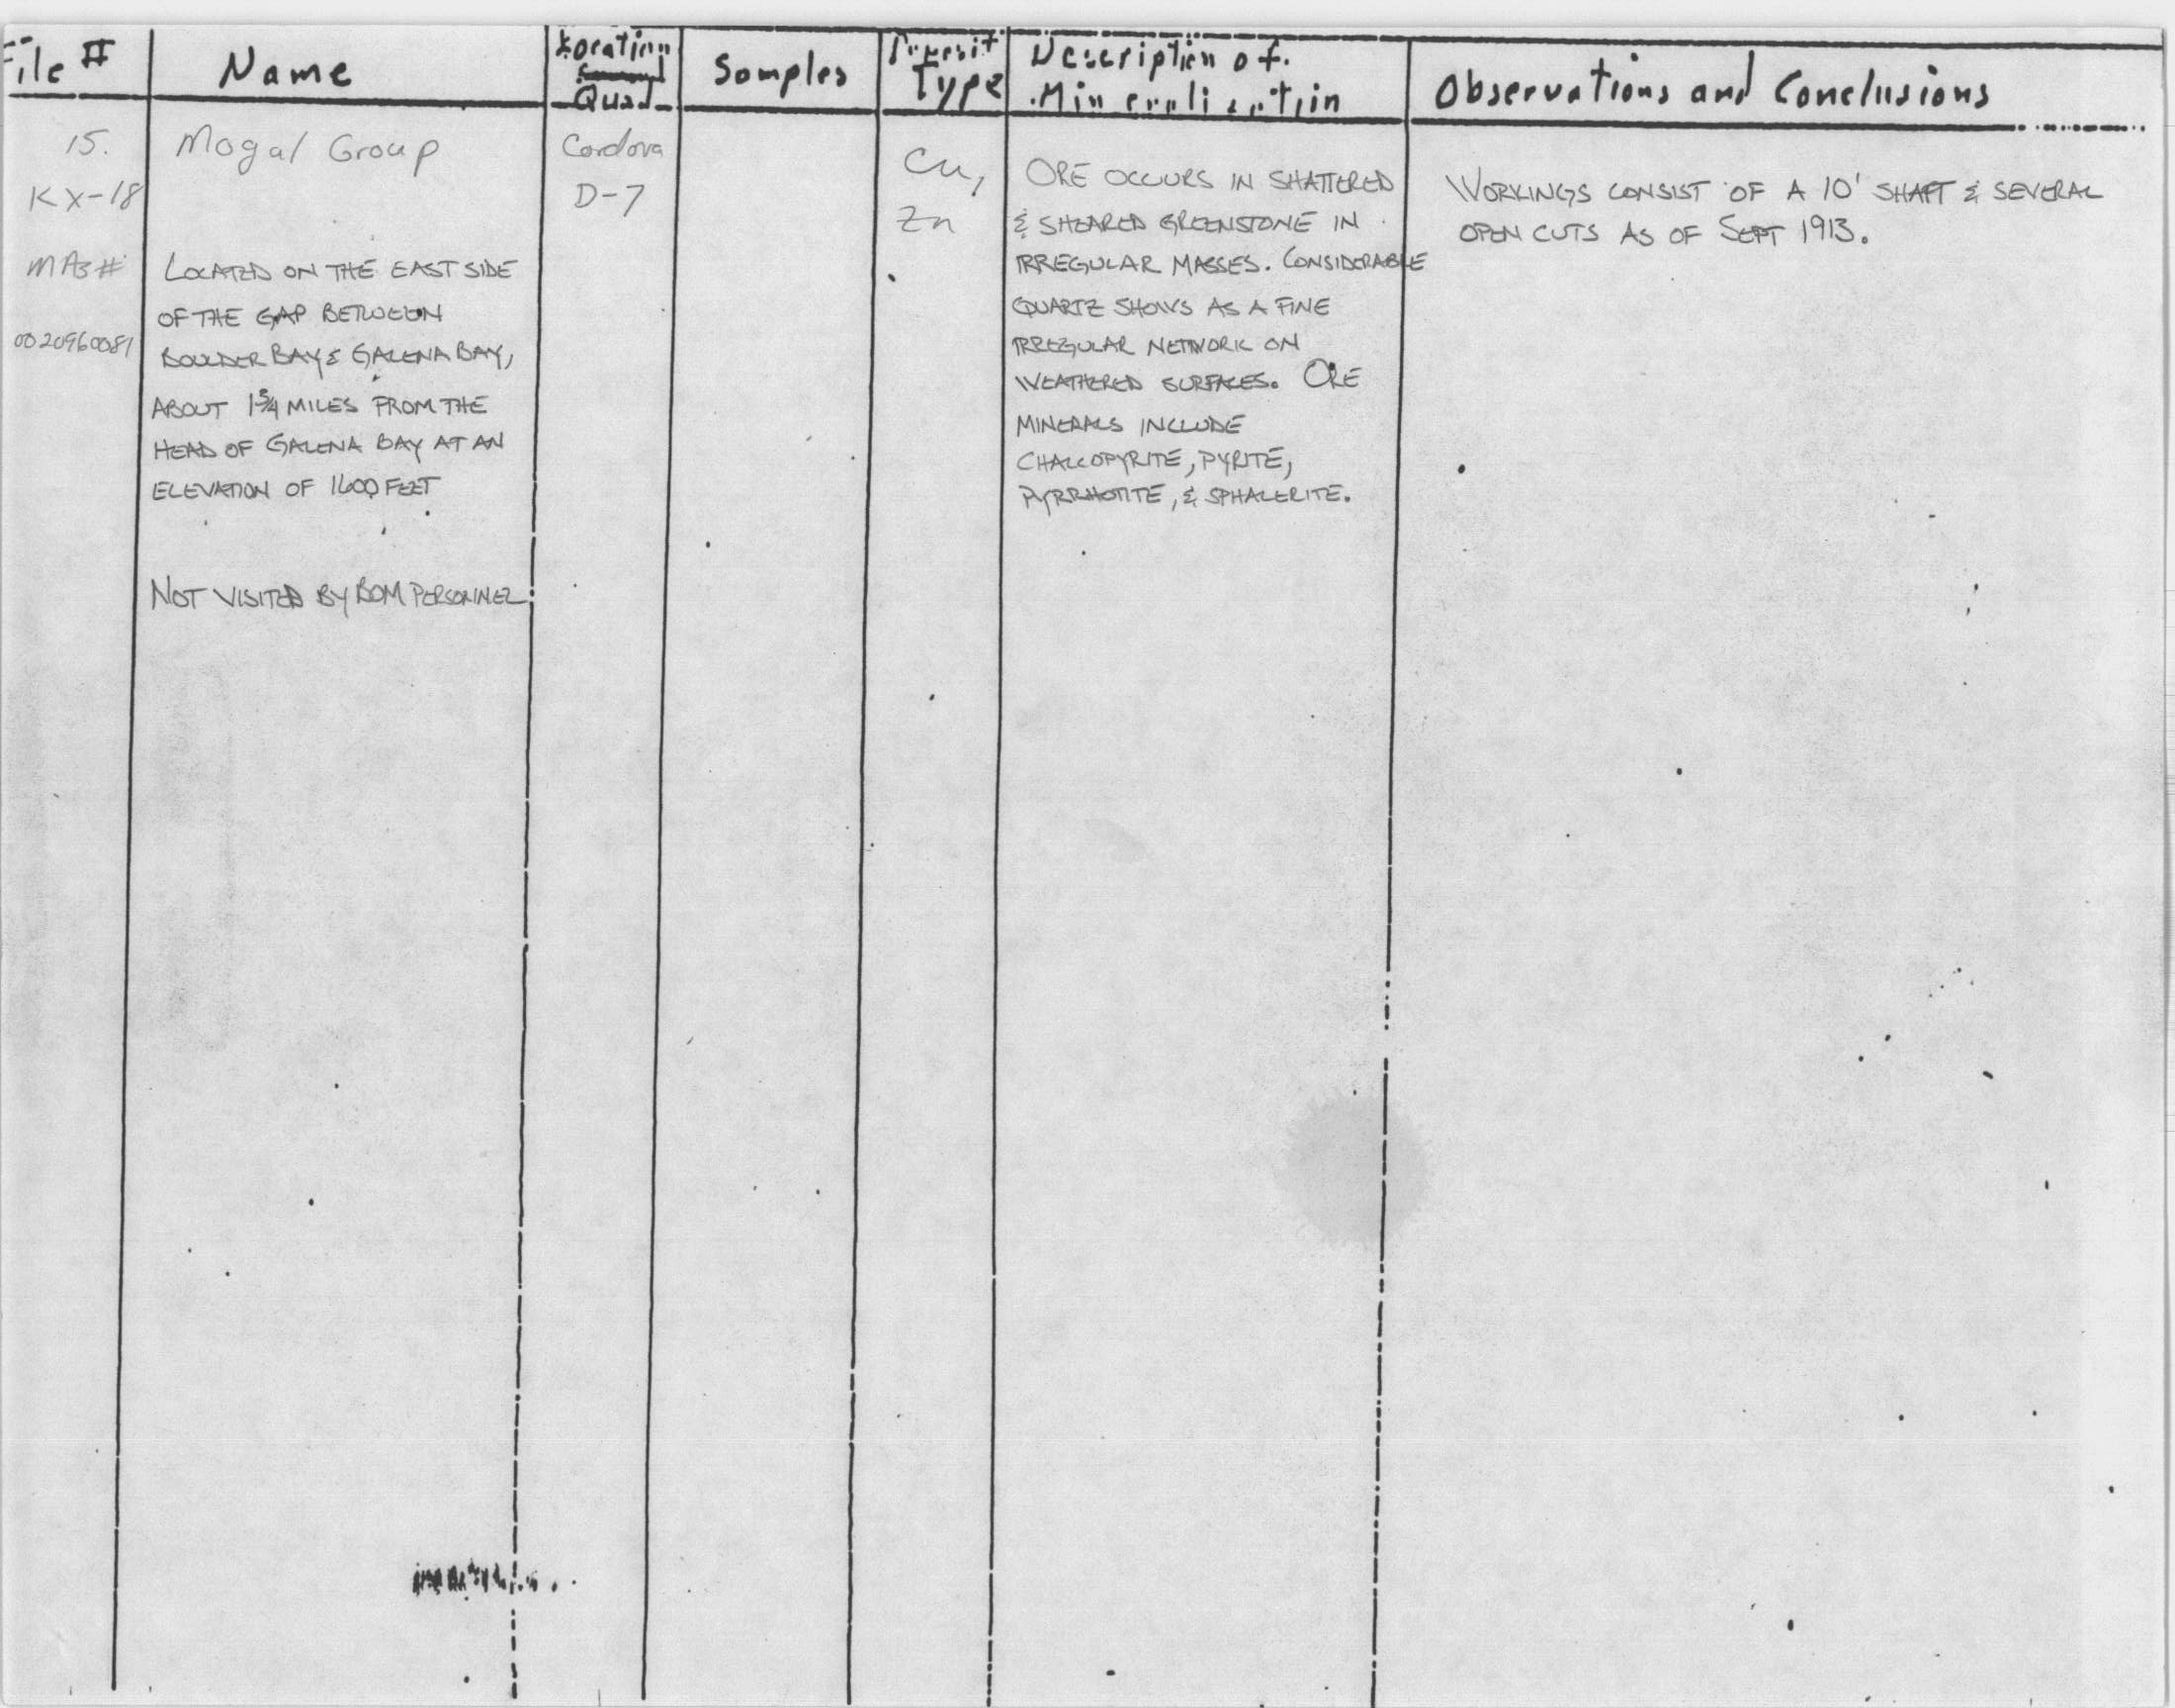 File #
Name
Location
Quad
Samples
Deposit
Type
Description of
Mineralization
Observations and Conclusions
15.
KX-18
MAS#
0020960081
Mogal Group
LOCATED ON THE EAST SIDE
OF THE GAP BETWEEN
BOULDER BAY & GALENA BAY,
ABOUT 1 3/4 MILES FROM THE
HEAD OF GALENA BAY AT AN
ELEVATION OF 1600 FEET
NOT VISITED BY BOM PERSONNEL
Cordova
D-7
Cu,
Zn
ORE OCCURS IN SHATTERED
& SHEARED GREENSTONE IN
IRREGULAR MASSES. CONSIDERABLE
QUARTZ SHOWS AS A FINE
IRREGULAR NETWORK ON
WEATHERED SURFACES. ORE
MINERALS INCLUDE
CHALCOPYRITE, PYRITE,
PYRRHOTITE, & SPHALERITE.
WORKINGS CONSIST OF A 10' SHAFT & SEVERAL
OPEN CUTS AS OF SEPT 1913.